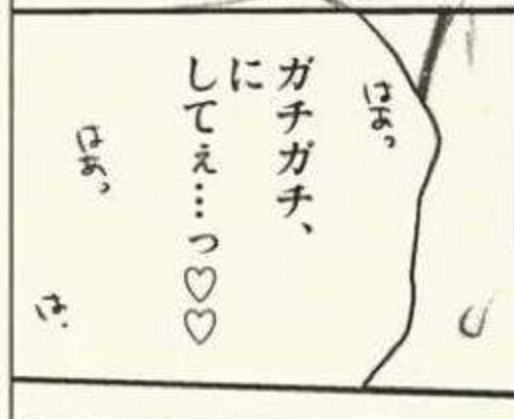 はあっ
ガチガチ、
に
してぇ…っ♡♡
はあっ
は、